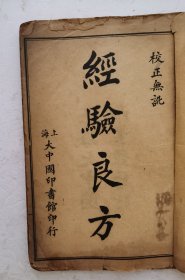 校正無訛
經驗良方
上海大中國印書館印行